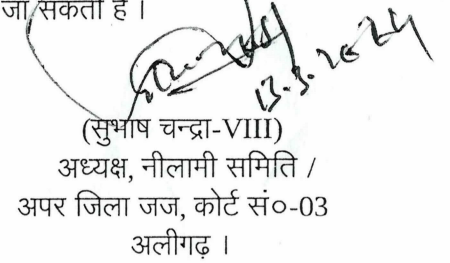 जा सकती है ।
13.3.2024
(सुभाष चन्द्रा-VIII)
अध्यक्ष, नीलामी समिति /
अपर जिला जज, कोर्ट सं०-03
अलीगढ़ ।